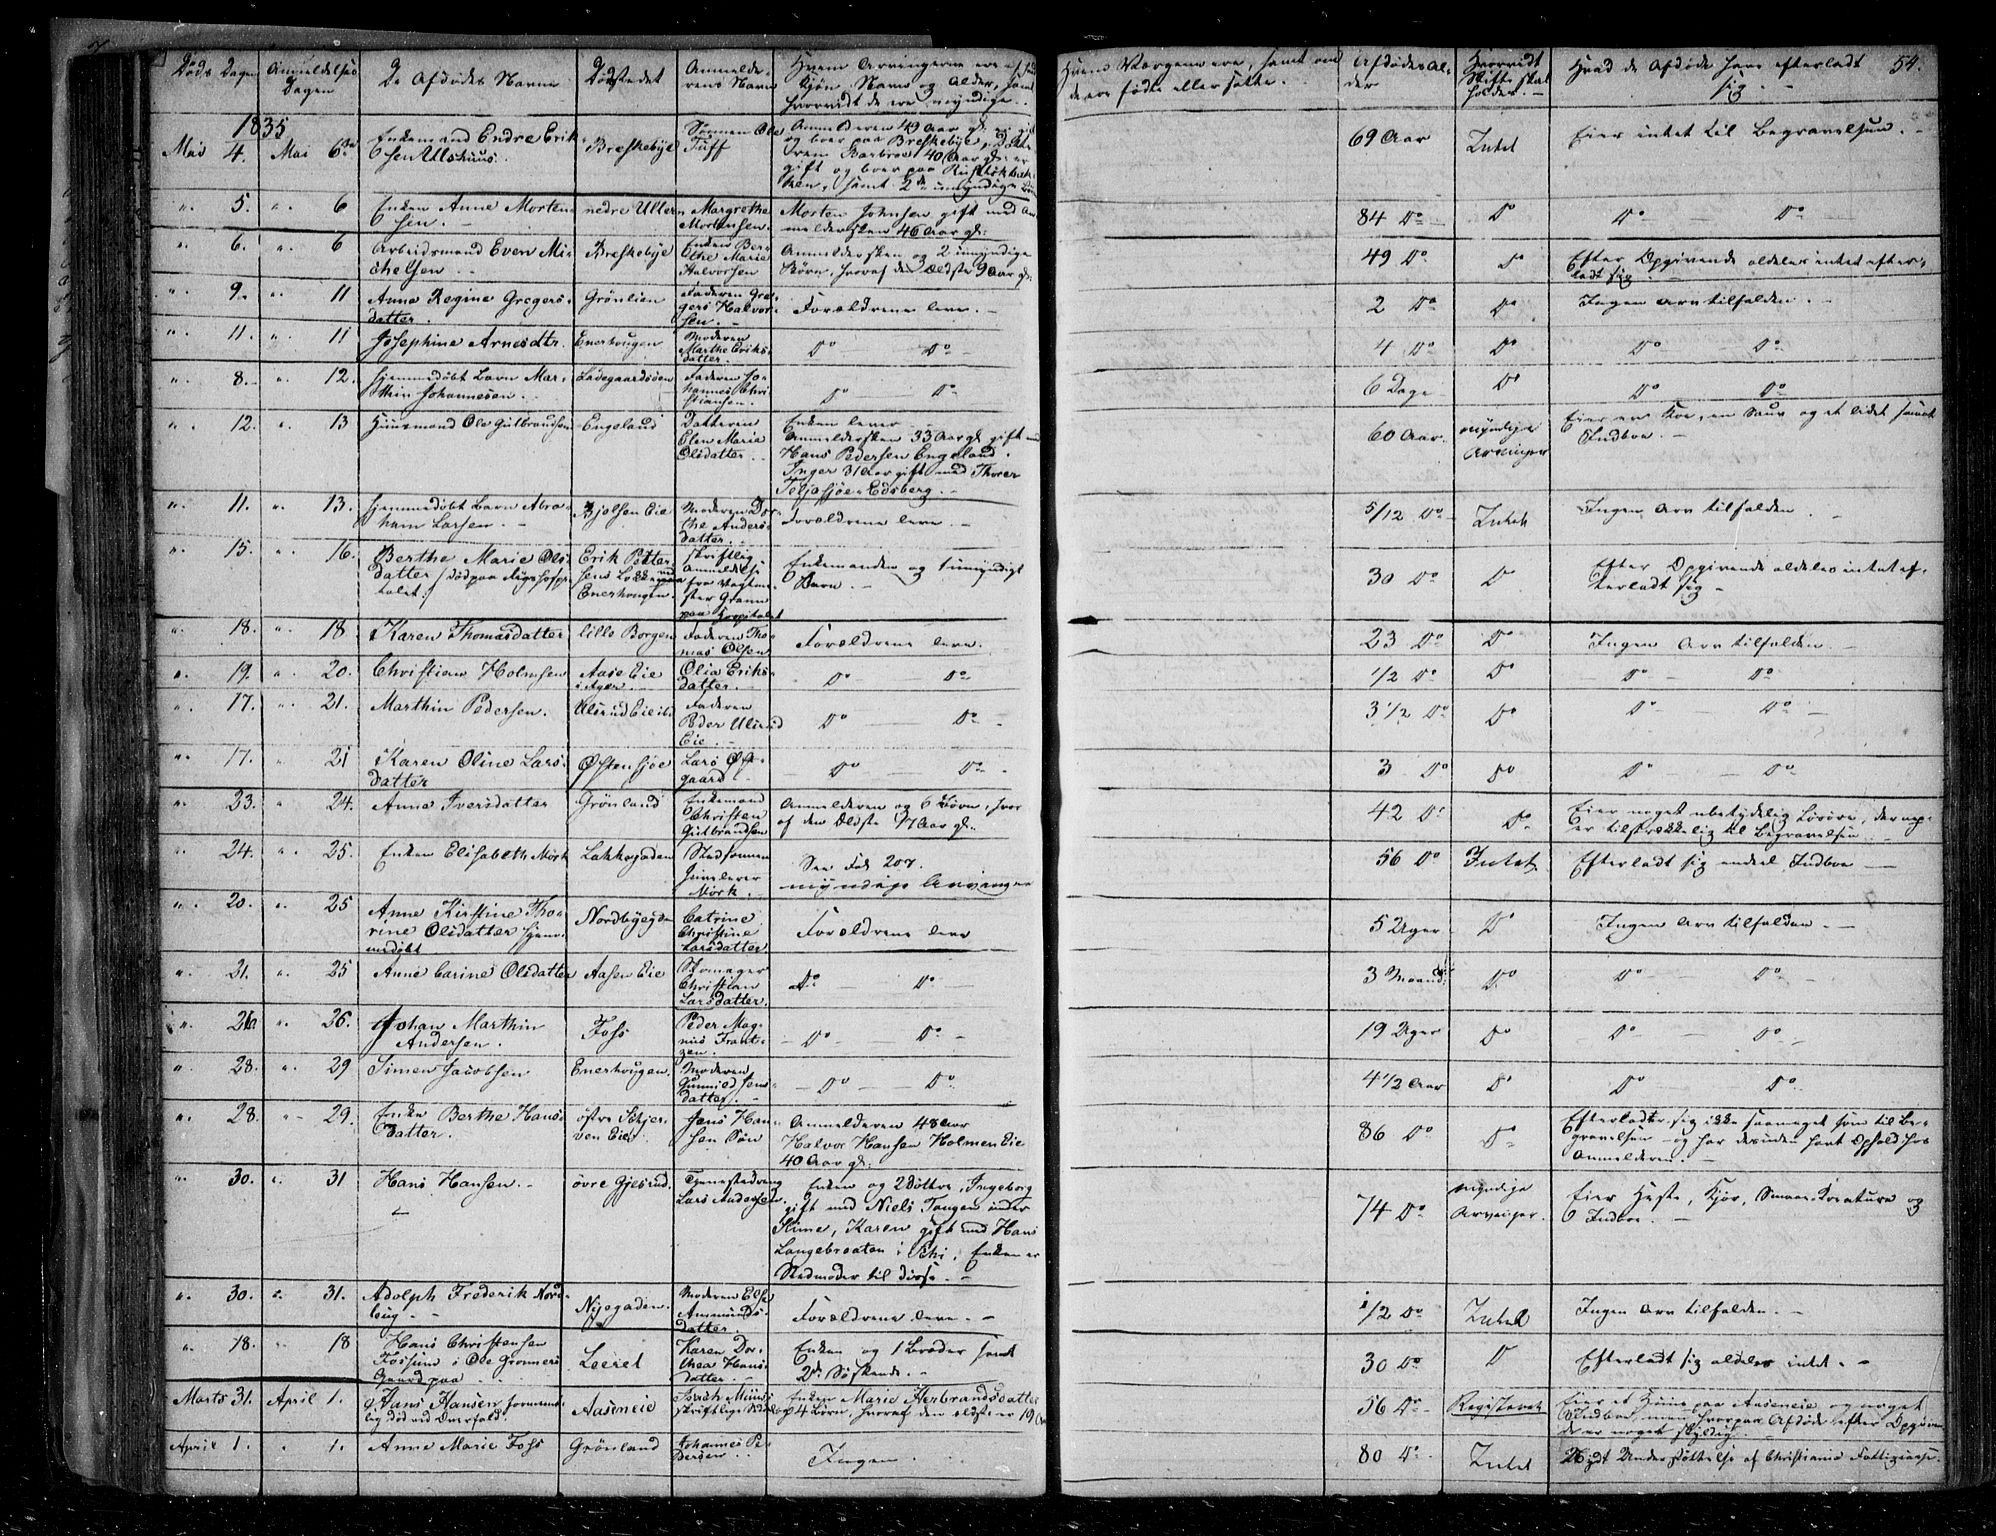 Døds Dagen
Anmeldelses Dagen
De Afdødes Navne
Dødstedet
Anmelderens Navn
Hvem Arvingerne ere
Kjøn Navn og Alder, samt
hvorvidt de ere myndige.
Hvem Værgerne ere, samt om
de ere fødte eller satte.
Afdødes Alder
Hvorvidt Skifte skal holdes
Hvad de Afdøde have efterladt sig
54.
1835
Mai 4. Mai 6te Enkemand Endre Eriksen Ullshuus. Breskebye Sønnen Ole Tuff
Anmelderen 43 Aar gl. gift
og boer paa Breskebye,
Barbroe 40 Aar gl. er
gift og boer paa
samt 2de umyndige
69 Aar Intet Eier intet til Begravelsen.
" 5. " 6 Enken Anne Mortensen. nedre Ullern Margrethe Mortensen. Morten Johnsen gift med Anmeldersken 46 Aar gl: 84 Do Do Do Do
" 6. " 6 Arbeidsmand Even Michelsen Breskebye Enken Berthe Marie Halvorsen Anmeldersken og 2 umyndige Børn, hvoraf den ældste 9 Aar gl: 49 Do Do Efter Opgivende aldeles intet efterladt sig
" 9. " 11 Anna Regine Gregersdatter. Grønlien Faderen Gregers Halvorsen. Forældrene leve. 2 Do Do Ingen Arv tilfalden.
" 11. " 11 Josephine Arnesdtr. Enerhougen Moderen Marthe Eriksdatter. Do Do 4 Do Do Do Do
" 8. " 12. Hjemmedøbt Barn Marthin Johannesen. Ladegaardsøen Faderen Johannes Christiansen. Do Do 6 Dage Do Do Do
" 12. " 13 Huusmand Ole Gulbrandsen Engeland Datteren Elen Maria Olsdatter. Enken lever
Anmeldersken 33 Aar gl. gift med
Hans Pedersen Engeland.
Inger 31 Aar gift med Thorer
Teljesjøe Edsberg.
60 Aar. myndige Arvinger Eier en Koe, en Sau og et lidet samt Indboe.
" 11. " 13. Hjemmedøbt Barn Abraham Larsen. Bjølsen Eie Moderen Dorthe Andersdatter. Forældrene leve 5/12 Do Intet Ingen Arv tilfalden.
" 15. " 16. Berthe Marie Olsdatter (død paa Rigshospitalet.) Erik Pettersens Løkke ved Enerhougen. Skriftlig Anmeldelse fra Vagtmester Gram paa Hospitalet Enkemanden og 1 umyndigt Barn. 30 Do Do Efter Opgivende aldeles intet efterladt sig
" 18. " 18 Karen Thomasdatter lille Borgen Faderen Thomas Olsen Forældrene leve. 23 Do Do Ingen Arv tilfalden
" 19. " 20. Christian Holmsen Aase Eie i Agær. Olia Eriksdatter. Do Do 1/2 Do Do Do Do
" 17. " 21. Marthin Pedersen. Ulsrud Eie Faderen Peder Ulsrud Eie. Do Do 3 1/2 Do Do Do Do
" 17. " 21 Karen Oline Larsdatter Østensjøe Lars Østgaard Do Do 3 Do Do Do Do
" 23. " 24. Anne Iversdatter Grønland Enkemand Christen Gulbrandsen Anmelderen og 6 Børn, hvoraf den Ældste 17 Aar gl. 42 Do Do Eier noget ubetydelig Løsøre, der er tilstrækkelig til Begravelsen
" 24. " 25. Enken Elisabeth Mørk Lakkegaden Stedsønnen Mørk. See Fol 207. myndige Arvinger 56 Do Intet. Efterladt sig endeel Indboe
" 20. " 25 Anne Kirstine Thorine Olsdatter hjemmedøbt Nordbyegden Catrine Christine Larsdatter Forældrene leve 5 Uger Do Ingen Arv tilfalden.
" 21. " 25 Anne Carine Olsdatter Aasen Eie Skomager Christian Larsdatter. Do Do 3 Maand: Do Do Do
" 26 " 26. Johan Marthin Andersen. Foss Peder Magnus Frantzen. Do Do 19 Uger Do Do Do
" 28. " 29 Simen Jacobsen Enerhougen. Moderen Gunnild Jensdatter. Do Do 4 1/2 Aar Do Do Do
" 28. " 29. Enke Berthe Hansdatter. østre Skjerven Eie Jens Hansen Søn Anmelderen 48 Aar
Halvor Hansen Holmen Eie
40 Aar gl.
86 Do Do Efterlader sig ikke saameget som til Begravelsen og har desuden havt Ophold hos Anmelderen.
" 30. " 31 Hans Hansen. øvre Gjesrud. Tjenestedreng Lars Andersen. Enken og 2 Døttre, Ingeborg
gift med Niels Tangen under
Hime, Karen gift med Hans
Langebraaten i Eki. Enken er
Stedmoder til disse.
74 Do myndige Arvinger. Eier Heste, Kjør, Smaae Kreature og Indboe.
" 30. " 31. Adolph Frederik Nordbug. Nyegaden. Moderen Else Ammundsdatter. Forældrene leve. 1/2 Do Intet Ingen Arv tilfalden.
" 18. " 18 Hans Christensen Fossum i Ole Grønners Gaard paa Leeret Karen Dorthea Hansdatter. Enken og 1 Broder samt 2de Søskende. 30 Do Do Efterladt sig aldeles intet.
Marts 31. April 1. Hans Hansen død ved Overfald. Aaseneie skriftlige Seddel Enken Marie Herbrandsdatter og 4 Børn, hvoraf den eldste er 19 Aar 56 Do Registeret Eier et Huus paa Aaseneie og noget Indboe, men hvorpaa Afdøde efter Opgivende er noget skyldig
April 1. " 1. Anne Marie Foss Grønland Johannes Pedersen Ingen. 80 Do Intet Understøttelse af Christiania Fattigcasse.